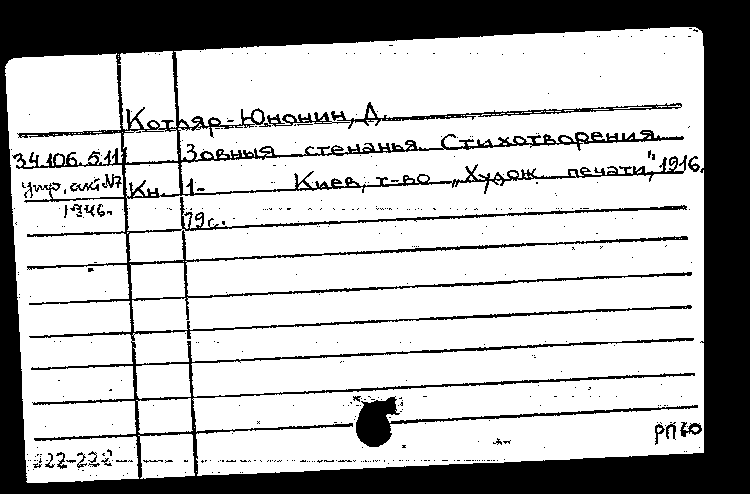 Котляр-Юнонин, Д.
34.106.5.111 Зовныя стенанья. Стихотворения.
утр. акт №7 Кн. 1- Киев, т-во „Худож. печати“, 1916.
1946. 79 с.
222-222
РП60